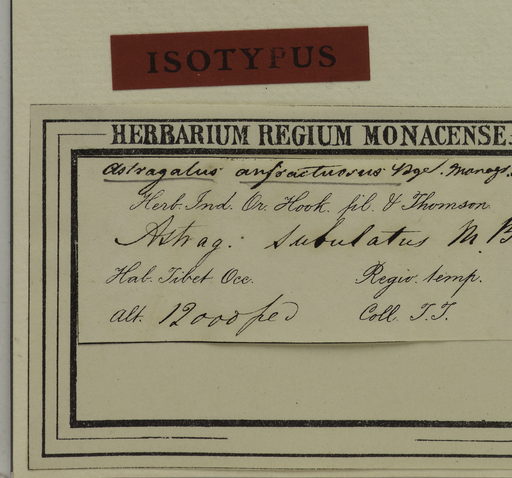 ISOTYPUS
HERBARIUM REGIUM MONACENSE.
Astragalus anfractuosus Bge. Monogr.
Herb. Ind. Or. Hook. fil. & Thomson
Astrag. subulatus M. B
Hab. Tibet Occ. Regio. temp.
Alt. 12000 ped Coll. T.T.